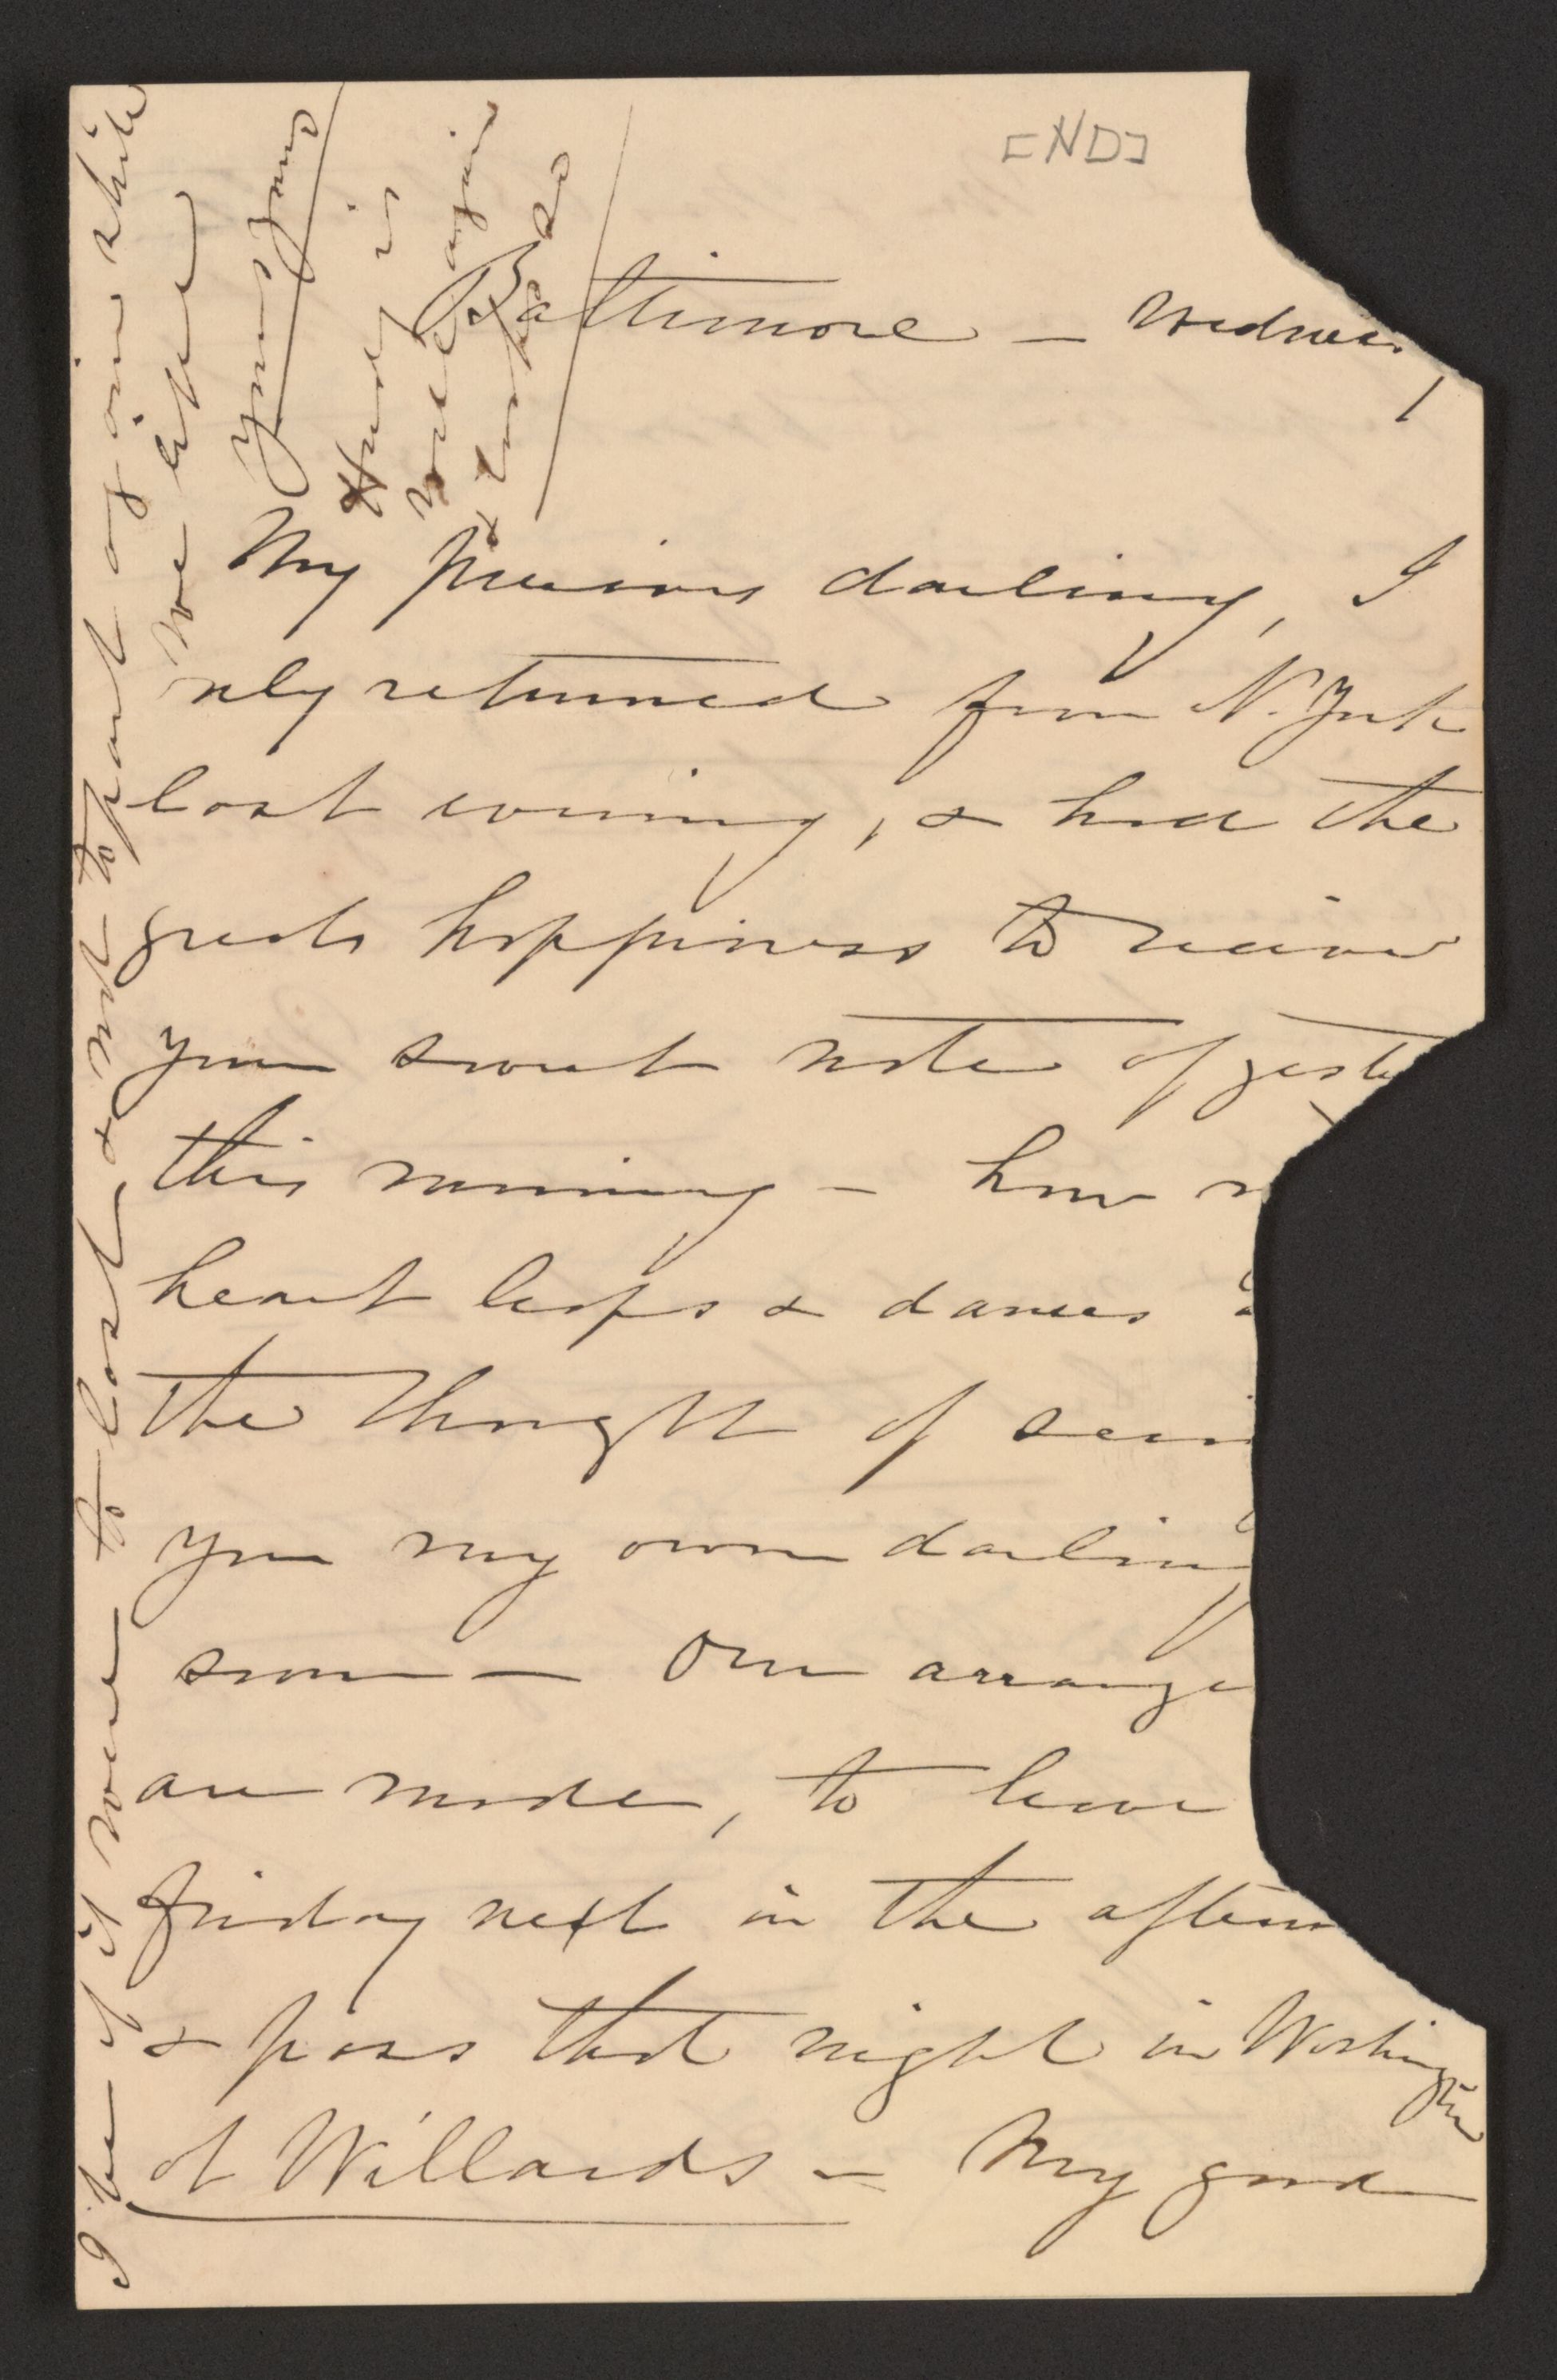 [ND]
Baltimore — Wednes
My precious darling, I
nly returned from N. York
last evening, & had the
great happiness to receive
your sweet note of yester
this morning — how m
heart leaps & dances a
the thought of seein
you my own darling
soon — Our arrange
are made, to leave
friday next in the aftern
& pass that night in Washington
at Willards — My good
to be if it were to last, & not to part again while
we live
Yours Yours
is
well again
&